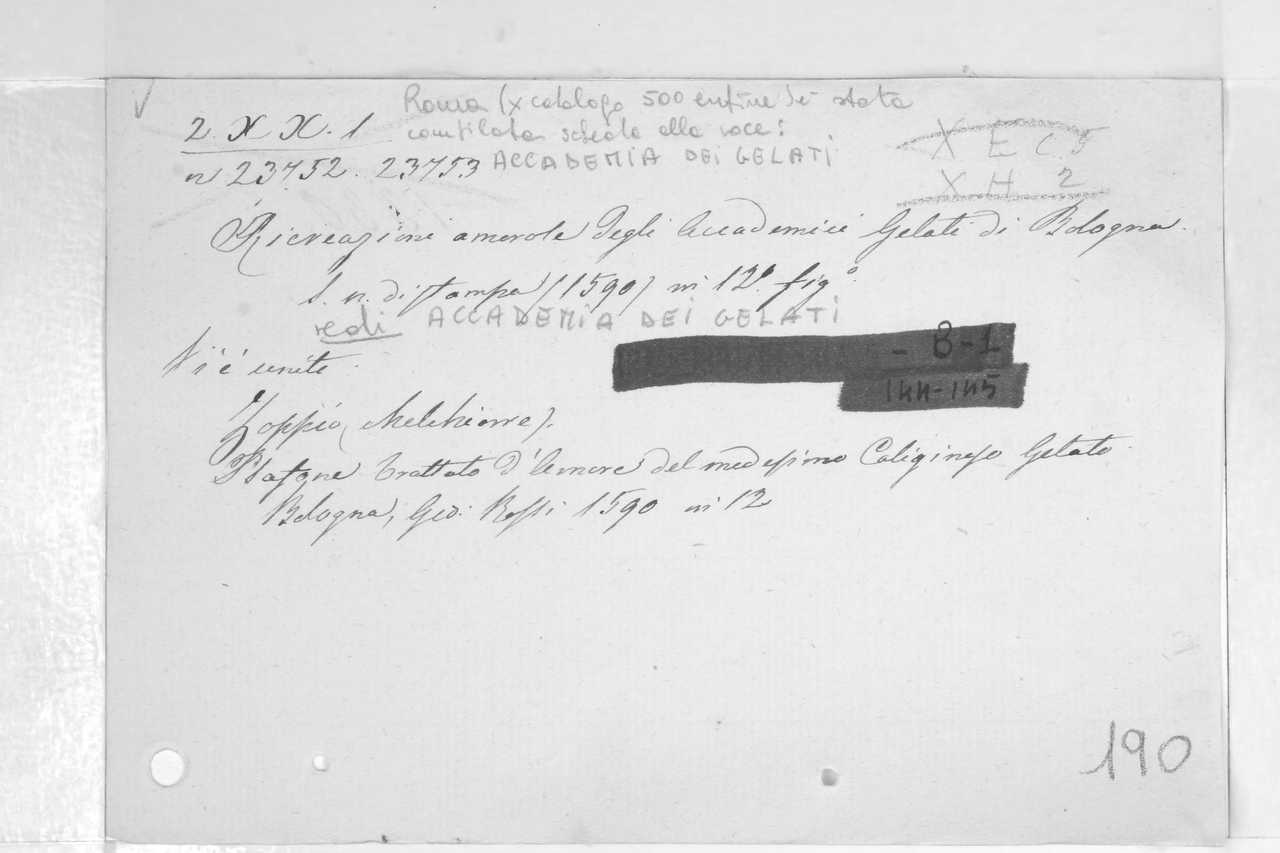 Roma (x catalogo 500 entine di è stata
2. X X. 1
compilata scheda alla voce:
n 23752. 23753 ACCADEMIA DEI GELATI
X E C 5
X H 2
Ricreazioni amorose degli Accademici Gelati di Bologna.
s. n. di stampa (1590) in 12º. figº.
vedi ACCADEMIA DEI GELATI
- B-1
V'è unito
144-145
Zoppio, (Melchiorre).
Psafone trattato d'Amore del medesimo Caliginoso Gelato.
Bologna, Gio: Rossi 1590 in 12
190